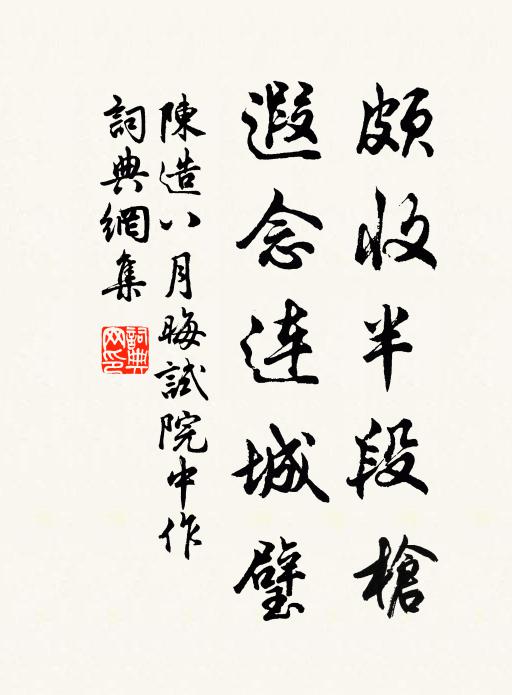 頗收半段槍
遐念連城璧
陳造八月晦試院中作
詞典網集
詞典網印